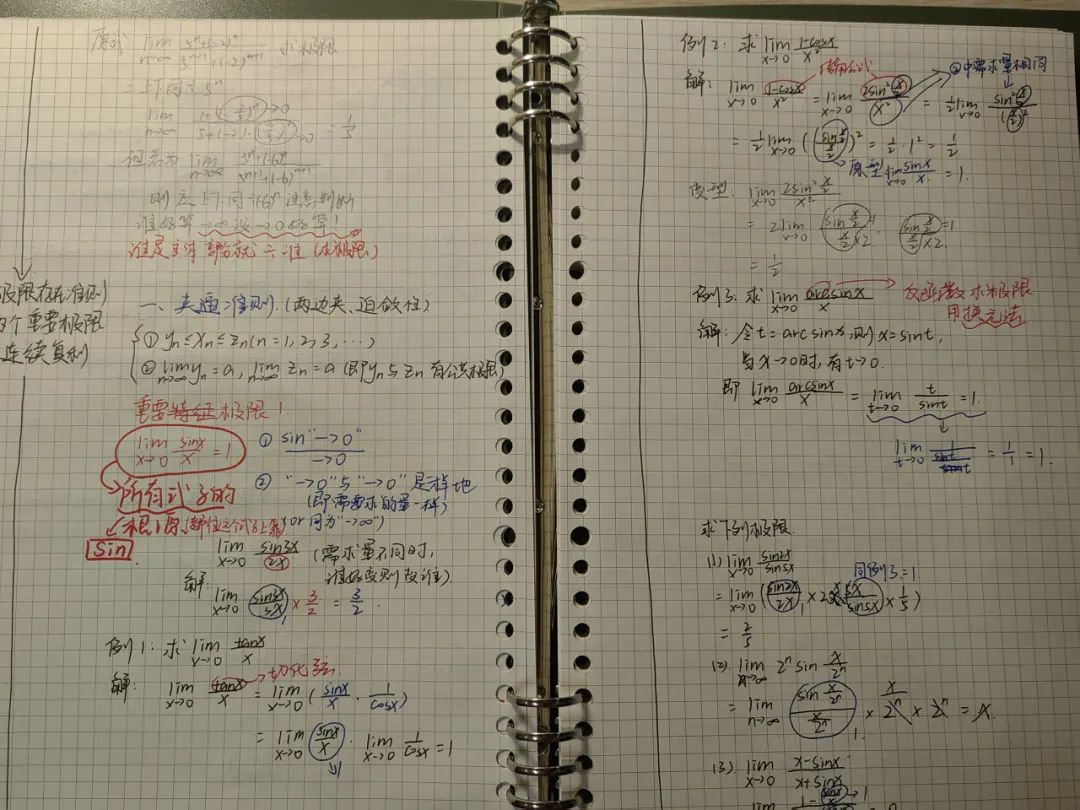 原式 lim n→∞ 求极限
lim n→∞ = 1/5
但若为 lim n→∞
谁好算
谁是主体 部分就÷谁 (求极限)
极限存在准则
两个重要极限
连续复利
一、夹逼准则 (两边夹、迫敛性)
① yn≤xn≤zn (n=1,2,3,…)
② lim n→∞ yn=a, lim n→∞ zn=a (即yn与zn有公共极限)
重要特征极限!
lim x→0 sinx/x =1
① sin"→0" / →0
② "→0"与"→0"是一样地
(即需要求的量一样)
所有式子的
根源 (都往这个式子上靠) (or 同为"→∞")
sin
lim x→0 sin3x/2x (需求量不同时,
谁好变则改谁)
解: lim x→0 sin3x/3x × 3/2 = 3/2
例1: 求 lim x→0 tanx/x
切化弦
解: lim x→0 tanx/x = lim x→0 (sinx/x · 1/cosx)
= lim x→0 sinx/x · lim x→0 1/cosx = 1
↓1
例2: 求 lim x→0 1-cosx/x²
倍角公式
②中需求量相同
解: lim x→0 1-cosx/x² = lim x→0 2sin²x/2 / x² = 1/2 lim x→0 sin²x/2 / (x/2)²
= 1/2 lim x→0 (sin x/2 / x/2)² = 1/2 · 1² = 1/2
原型 lim x→0 sinx/x = 1.
变型: lim x→0 2sin²x/2 / x²
= 2 lim x→0 sin x/2 / x/2 ×2 · sin x/2 / x/2 ×2 =1
= 1/2
例3: 求 lim x→0 arcsinx/x
反函数求极限
用换元法
解: 令 t=arcsinx, 则 x=sint,
当 x→0时, 有 t→0.
即 lim x→0 arcsinx/x = lim t→0 t/sint = 1.
lim t→0 = 1/1 = 1.
求下列极限
(1) lim x→0 sin2x/sin5x
同例3=1
= lim x→0 (sin2x/2x × 2x × 5x/sin5x × 1/5)
= 2/5
(2) lim n→∞ 2ⁿ sin x/2ⁿ
= lim n→∞ sin x/2ⁿ / x/2ⁿ × x/2ⁿ × 2ⁿ = x.
(3) lim x→0 x-sinx / x+sinx